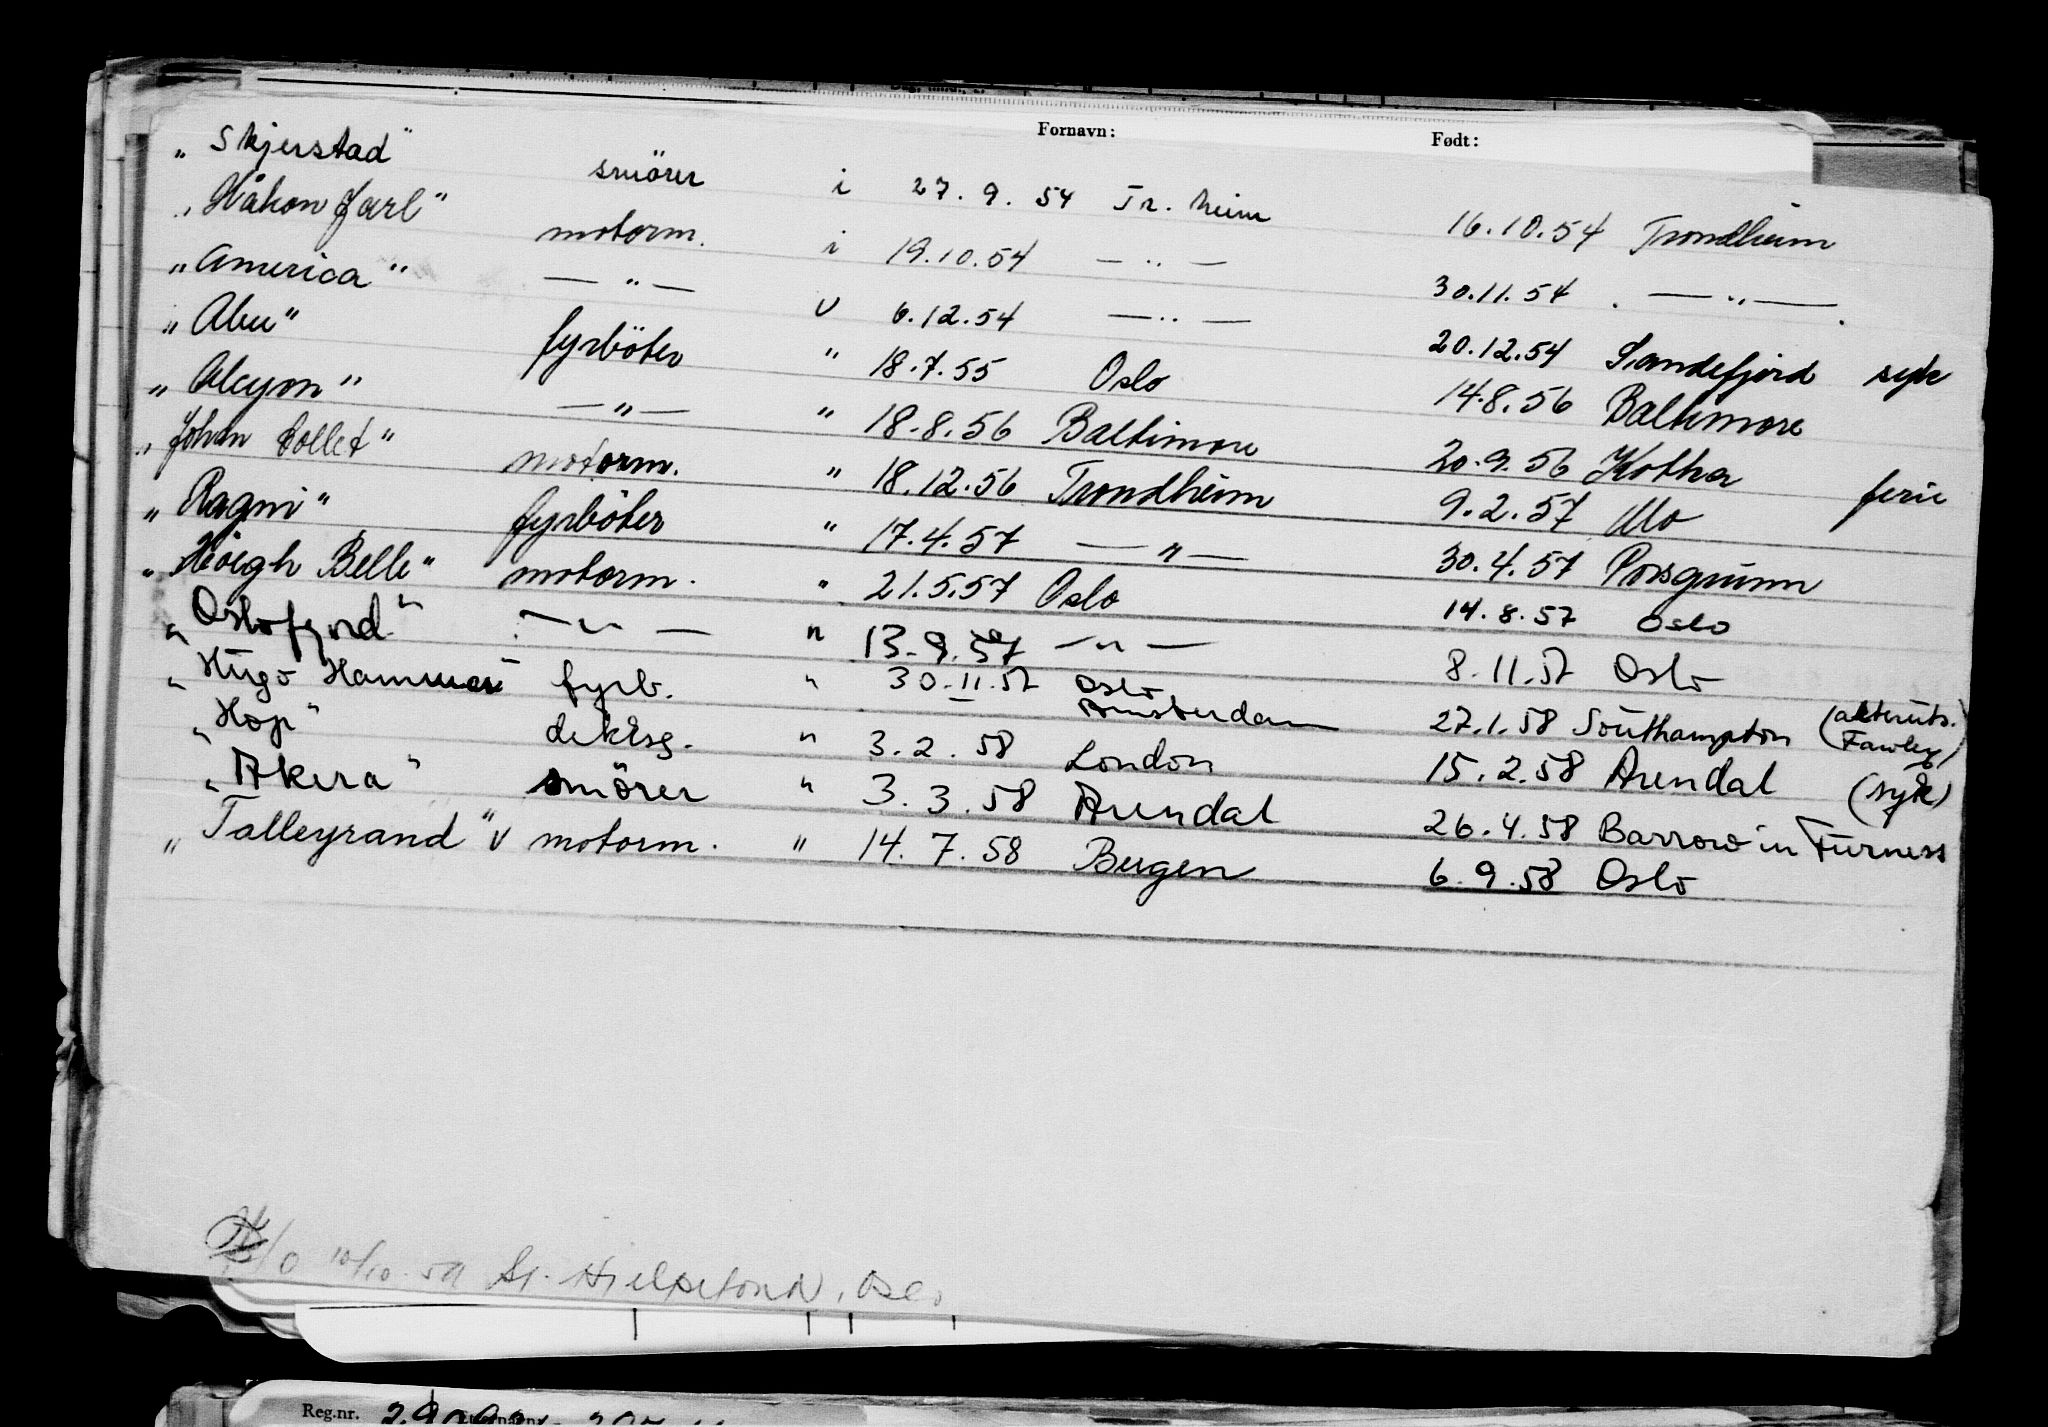 Fornavn: Født:
„ Skjerstad" smörer i 27.9.54 Tr.heim 16.10.54 Trondheim
„ Håkon Jarl" motorm. i 19.10.54 — „ — 30.11.54 . — „ — .
„ America" — „ — v 6.12.54 — „ — 20.12.54 Sandefjord syk
„ Abu" fyrböter " 18.7.55 Oslo 14.8.56 Baltimore
„ Alcyon" — „ — " 18.8.56 Baltimore 20.9.56 Kotka ferie
„ Johan Collet" motorm. " 18.12.56 Trondheim 9.2.57 Mo
„ Ragni" fyrböter " 17.4.57 — „ — 30.4.57 Porsgrunn
„ Höigh Belle" motorm. " 21.5.57 Oslo 14.8.57 Oslo
„ Oslofjord" — „ — " 13.9.57 — „ — 8.11.57 Oslo
„ Hugo Hammar" fyrb. " 30.11.57 Oslo Amsterdam 27.1.58 Southampton (akteruts. Fawley)
„ Hop" dekksg. " 3.2.58 London 15.2.58 Arendal (syk)
„ Akera" smörer " 3.3.58 Arendal 26.4.58 Barrow in Furness
„ Talleyrand" v motorm. " 14.7.58 Bergen 6.9.58 Oslo
10/10.59 Hjelpefond, Oslo
Reg.nr.